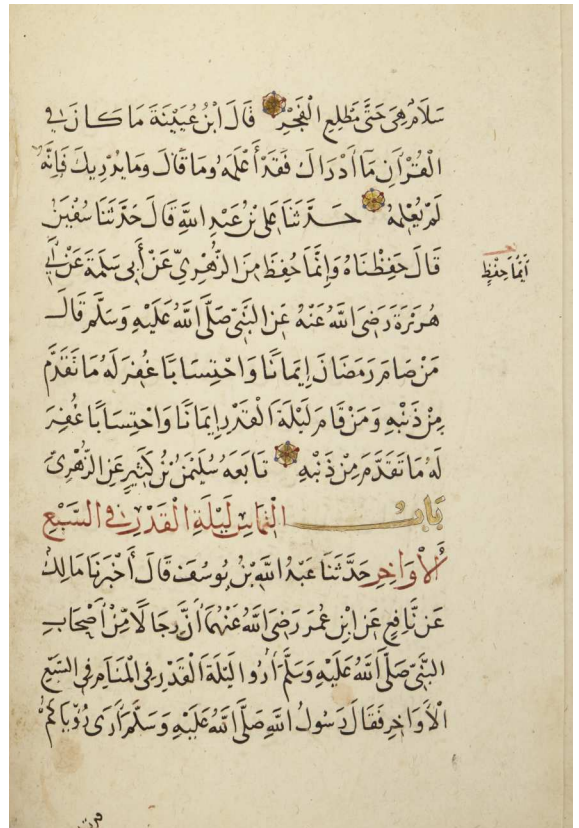 سَلَامٌ هِيَ حَتَّى مَطْلَعِ الْفَجْرِ قَالَ ابْنُ عُيَيْنَةَ مَا كَانَ فِي
الْقُرْآنِ مَا أَدْرَاكَ فَقَدْ أَعْلَمَهُ وَمَا قَالَ وَمَا يُدْرِيكَ فَإِنَّهُ
لَمْ يُعْلِمْهُ حَدَّثَنَا عَلِيُّ بْنُ عَبْدِ اللَّهِ قَالَ حَدَّثَنَا سُفْيَنُ
قَالَ حَفِظْنَاهُ وَإِنَّمَا حُفِظَ مِنَ الزُّهْرِيِّ عَنْ أَبِي سَلَمَةَ عَنْ أَبِي
أَيُّمَا حِفْظٍ
هُرَيْرَةَ رَضِيَ اللَّهُ عَنْهُ عَنِ النَّبِيِّ صَلَّى اللَّهُ عَلَيْهِ وَسَلَّمَ قَالَ
مَنْ صَامَ رَمَضَانَ إِيمَانًا وَاحْتِسَابًا غُفِرَ لَهُ مَا تَقَدَّمَ
مِنْ ذَنْبِهِ وَمَنْ قَامَ لَيْلَةَ الْقَدْرِ إِيمَانًا وَاحْتِسَابًا غُفِرَ
لَهُ مَا تَقَدَّمَ مِنْ ذَنْبِهِ تَابَعَهُ سُلَيْمَنُ بْنُ كَثِيرٍ عَنِ الزُّهْرِيِّ
بَابُ الْتِمَاسِ لَيْلَةِ الْقَدْرِ فِي السَّبْعِ
الْأَوَاخِرِ حَدَّثَنَا عَبْدُ اللَّهِ بْنُ يُوسُفَ قَالَ أَخْبَرَنَا مَالِكٌ
عَنْ نَافِعٍ عَنِ ابْنِ عُمَرَ رَضِيَ اللَّهُ عَنْهُمَا أَنَّ رِجَالًا مِنْ أَصْحَابِ
النَّبِيِّ صَلَّى اللَّهُ عَلَيْهِ وَسَلَّمَ أُرُوا لَيْلَةَ الْقَدْرِ فِي الْمَنَامِ فِي السَّبْعِ
الْأَوَاخِرِ فَقَالَ رَسُولُ اللَّهِ صَلَّى اللَّهُ عَلَيْهِ وَسَلَّمَ أَرَى رُؤْيَاكُمْ